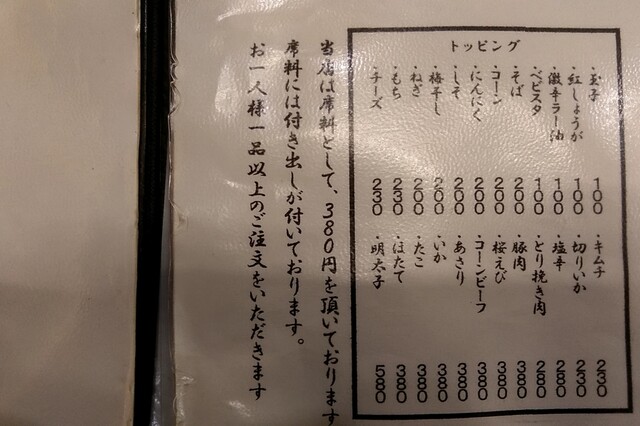 トッピング
・玉子 100
・紅しょうが 100
・激辛ラー油 100
・ベビスタ 100
・そば 200
・コーン 200
・にんにく 200
・しそ 200
・梅干し 200
・ねぎ 200
・もち 230
・チーズ 230
・キムチ 230
・切りいか 230
・塩辛 280
・とり挽き肉 280
・豚肉 380
・桜えび 380
・コーンビーフ 380
・あさり 380
・いか 380
・たこ 380
・ほたて 380
・明太子 580
当店は席料として、380円を頂いております
席料には付き出しが付いております。
お一人様一品以上のご注文をいただきます